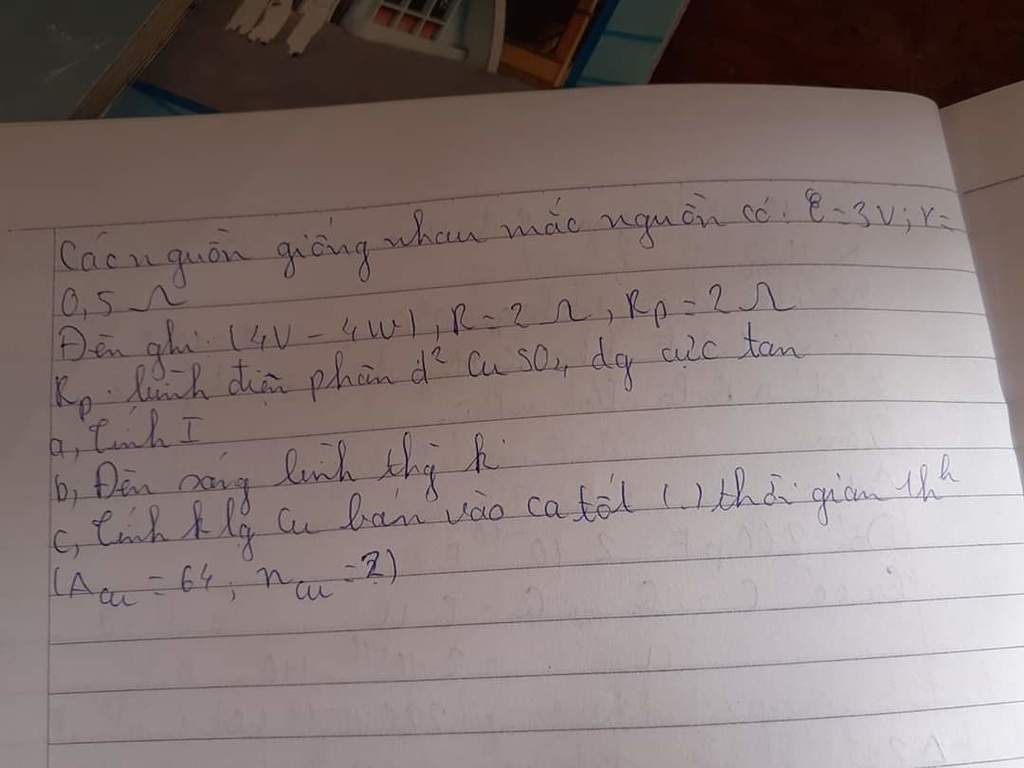 Các nguồn giống nhau mắc nguồn có: ξ = 3V; r =
0,5 Ω
Đèn ghi: (4V - 4W), R = 2 Ω, Rp = 2 Ω
Rp: bình điện phân d² CuSO4 dg cực tan
a, Tính I
b, Đèn sáng bình thg k
c, Tính k lg Cu bám vào ca tốt (.) thời gian 1h
(A_Cu = 64, n_Cu = 2)